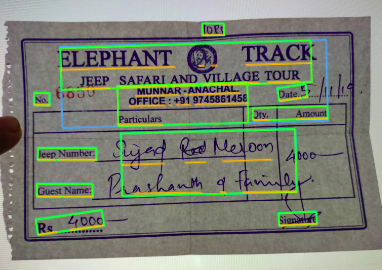 ELEPHANT TRACK
JEEP SAFARI AND VILLAGE TOUR
MUNNAR - ANACHAL.
No. 6830 OFFICE : +91 9745861458 Date: 5/11/19
Particulars Qty. Amount
Jeep Number: 4000-
Guest Name: Prashanth & Family.
Rs. 4000-
Signature